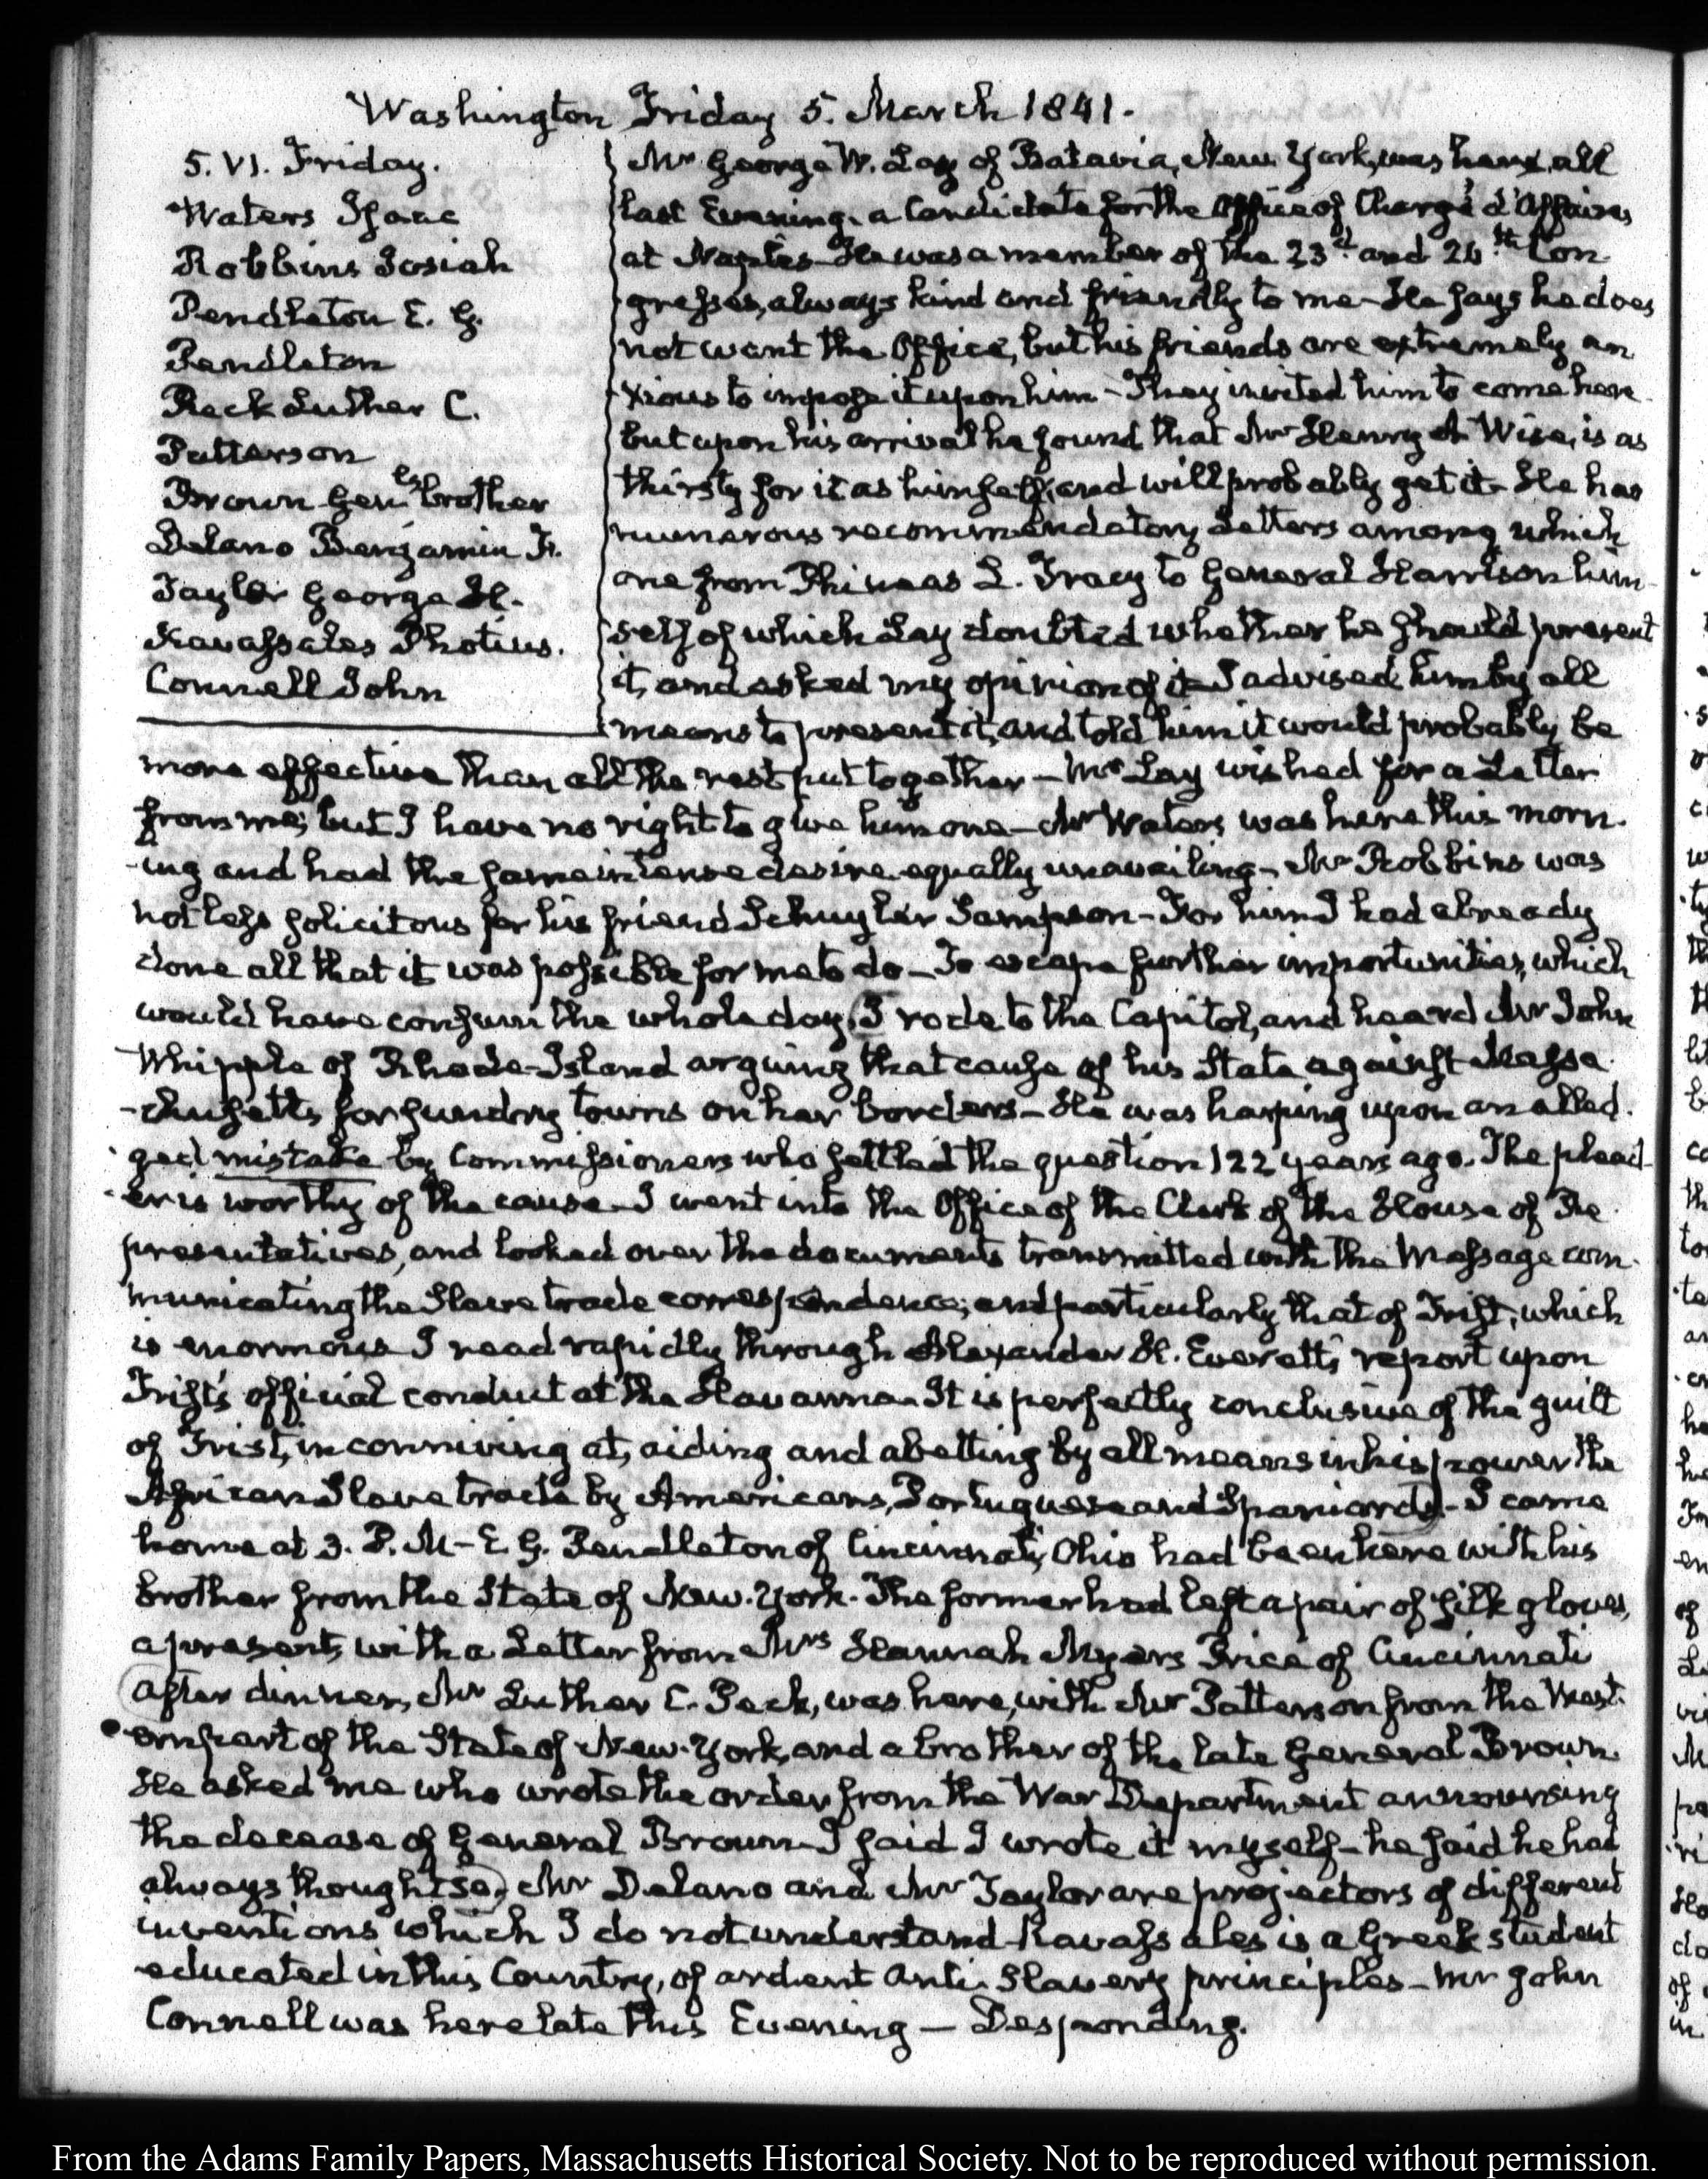 Washington Friday 5. March 1841.
5. VI. Friday.
Waters Isaac
Robbins Josiah
Pendleton E. G.
Pendleton
Peck Luther C.
Patterson
Brown Genls brother
Delano Benjamin F.
Taylor George H.
Kavassales Photius.
Connell John
Mr George W. Lay of Batavia, New York, was here, all
last Evening. a Candidate for the Office of Chargé d'Affaires
at Naples. He was a member of the 23d. and 24th. Con
gresses, always kind and friendly to me – He says he does
not want the Office, but his friends are extremely an
xious to impose it upon him – They invited him to come here
but upon his arrival he found that Mr Henry A Wise, is as
thirsty for it as himself, and will probably get it – He has
numerous recommendatory Letters among which
one from Phineas L. Tracy to General Harrison him
self of which Lay doubted whether he should present
it, and asked my opinion of it – I advised him by all
means to present it, and told him it would probably be
more effective than all the rest put together – Mr Lay wished for a Letter
from me; but I have no right to give him one – Mr Waters was here this morn.
-ing and had the same intense desire equally unavailing – Mr Robbins was
not less solicitous for his friend Schuyler Sampson – For him I had already
done all that it was possible for me to do – To escape further importunities, which
would have consum the whole day, I rode to the Capitol, and heard Mr John
Whipple of Rhode-Island arguing that cause of his State against Massa
-chusetts, for sundry towns on her borders – He was harping upon an alled.
ged mistake by Commissioners who settled the question 122 years ago. The plead-
-er is worthy of the cause – I went into the Office of the Clerk of the House of Re
presentatives, and looked over the documents transmitted with the Message com-
municating the Slave trade correspondence; and particularly that of Trist, which
is enormous I read rapidly through Alexander H. Everett's report upon
Trist's official conduct at the Havanna. It is perfectly conclusive of the guilt
of Trist, in conniving at, aiding and abetting by all means in his power the
African Slave trade by Americans, Portuguese and Spaniards. – I came
home at 3. P. M – E. G. Pendleton of Cincinnati, Ohio had been here with his
brother from the State of New-York. The former had left a pair of silk gloves,
a present, with a Letter from Mrs Hannah Myers Price of Cincinnati
after dinner, Mr Luther C. Peck, was here, with Mr Patterson from the West.
ern part of the State of New-York, and a brother of the late General Brown.
He asked me who wrote the order from the War Department announcing
the decease of General Brown – I said I wrote it myself – he said he had
always thought so. Mr Delano and Mr Taylor are projectors of different
inventions which I do not understand – Kavassales is a Greek student
educated in this Country, of ardent Anti-Slavery principles – Mr John
Connell was here late this Evening – Desponding.
From the Adams Family Papers, Massachusetts Historical Society. Not to be reproduced without permission.